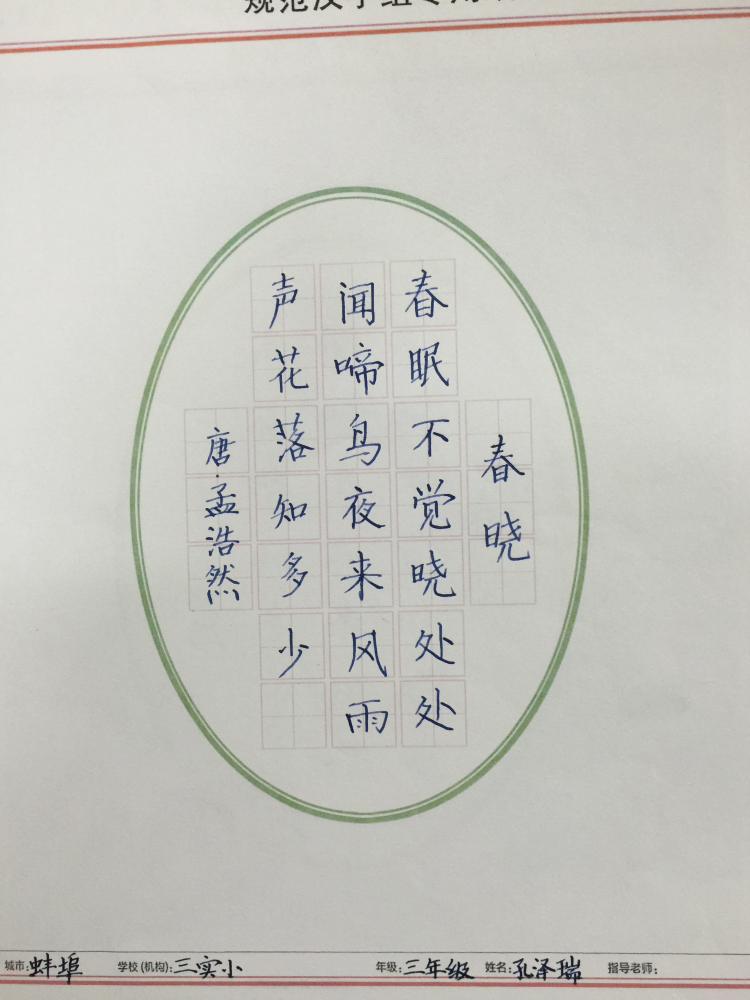 规范汉字组专用
春晓
春眠不觉晓处处
闻啼鸟夜来风雨
声花落知多少
唐·孟浩然
城市:蚌埠 学校(机构):三实小 年级:三年级 姓名:孔泽瑞 指导老师: